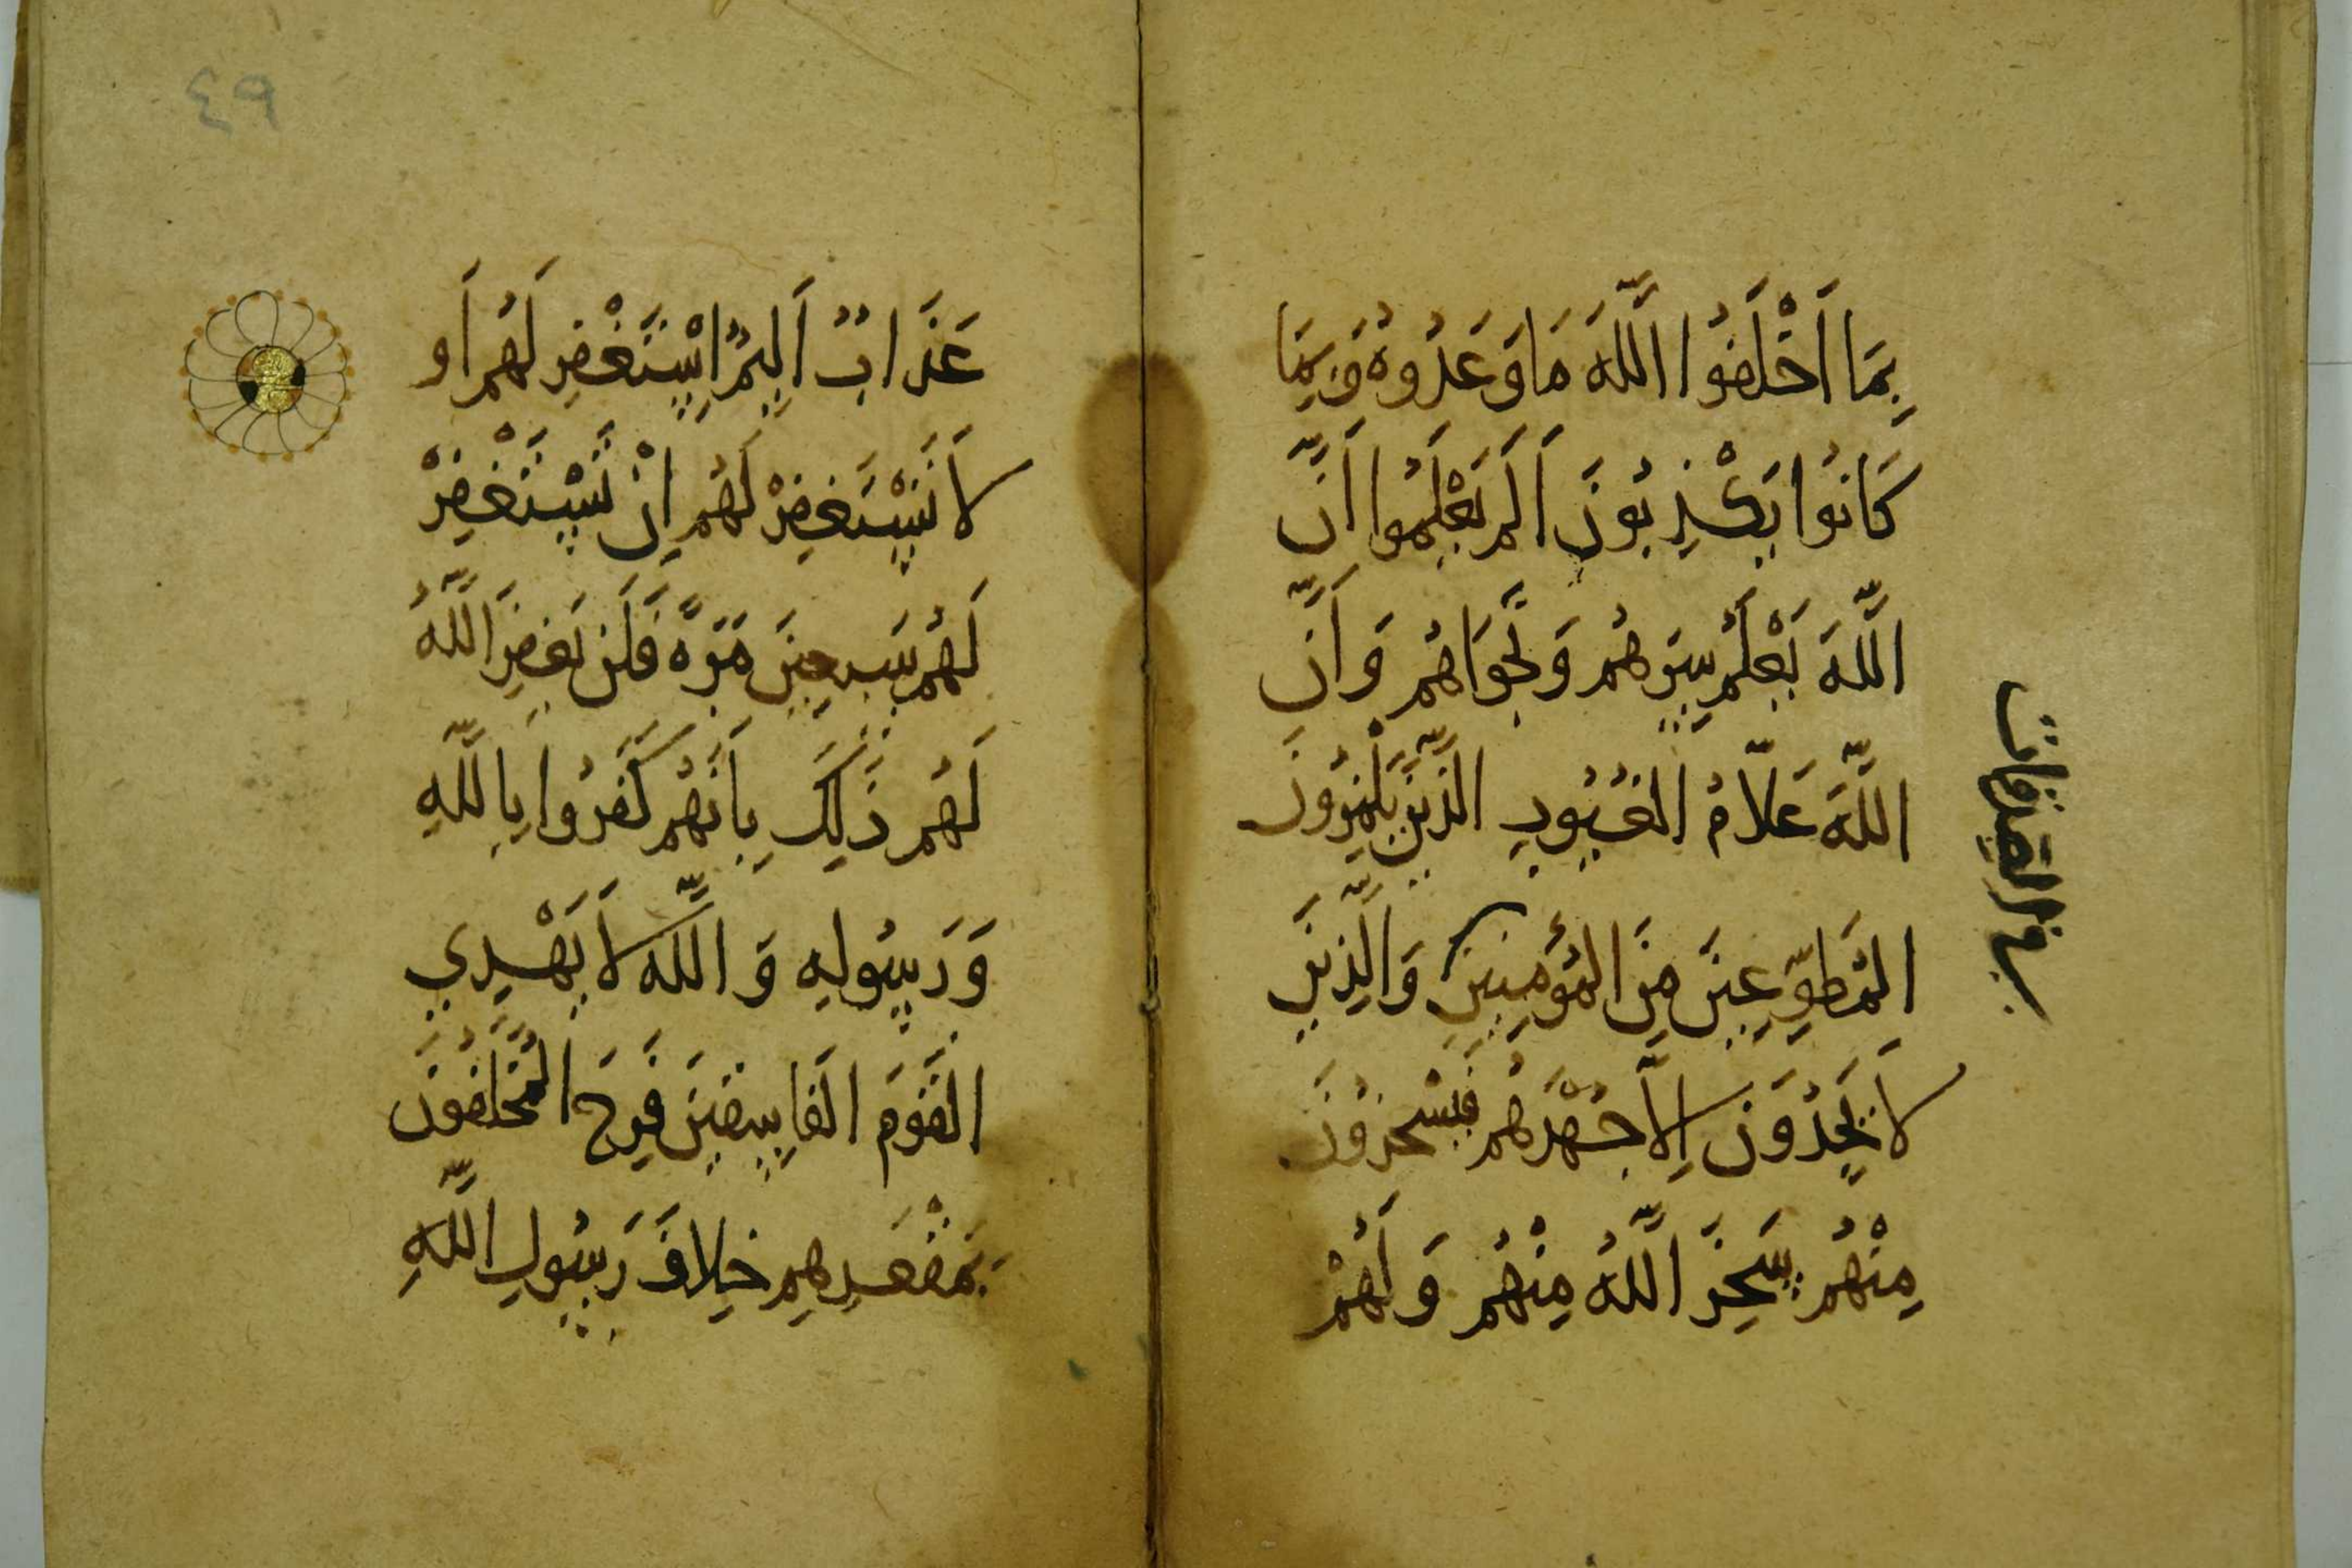 بِمَا اَخْلَفُوا اللَّهَ مَا وَعَدُوهُ وَبِمَا
كَانُوا يَكْذِبُونَ اَلَمْ يَعْلَمُوا اَنَّ
اللَّهَ يَعْلَمُ سِرَّهُم وَنَجْوَاهُم وَاَنَّ
اللَّهَ عَلَّامُ الْغُيُوبِ الَّذِينَ يَلْمِزُونَ
الْمُطَّوِّعِينَ مِنَ الْمُؤْمِنِينَ وَالَّذِينَ
لَا يَجِدُونَ اِلَّا جُهْدَهُم فَيَسْخَرُونَ
مِنْهُم سَخِرَ اللَّهُ مِنْهُم وَلَهُمْ
في الصدقات
٤٩
عَذَابٌ اَلِيمٌ اِسْتَغْفِر لَهُم اَو
لَا تَسْتَغْفِرْ لَهُم اِنْ تَسْتَغْفِرْ
لَهُم سَبْعِينَ مَرَّةً فَلَن يَغْفِرَ اللَّهُ
لَهُم ذَلِكَ بِاَنَّهُم كَفَرُوا بِاللَّهِ
وَرَسُولِهِ وَاللَّه لَا يَهْدِي
الْقَوْمَ الْفَاسِقِينَ فَرِحَ الْمُخَلَّفُونَ
بِمَقْعَدِهِم خِلَافَ رَسُولِ اللَّهِ